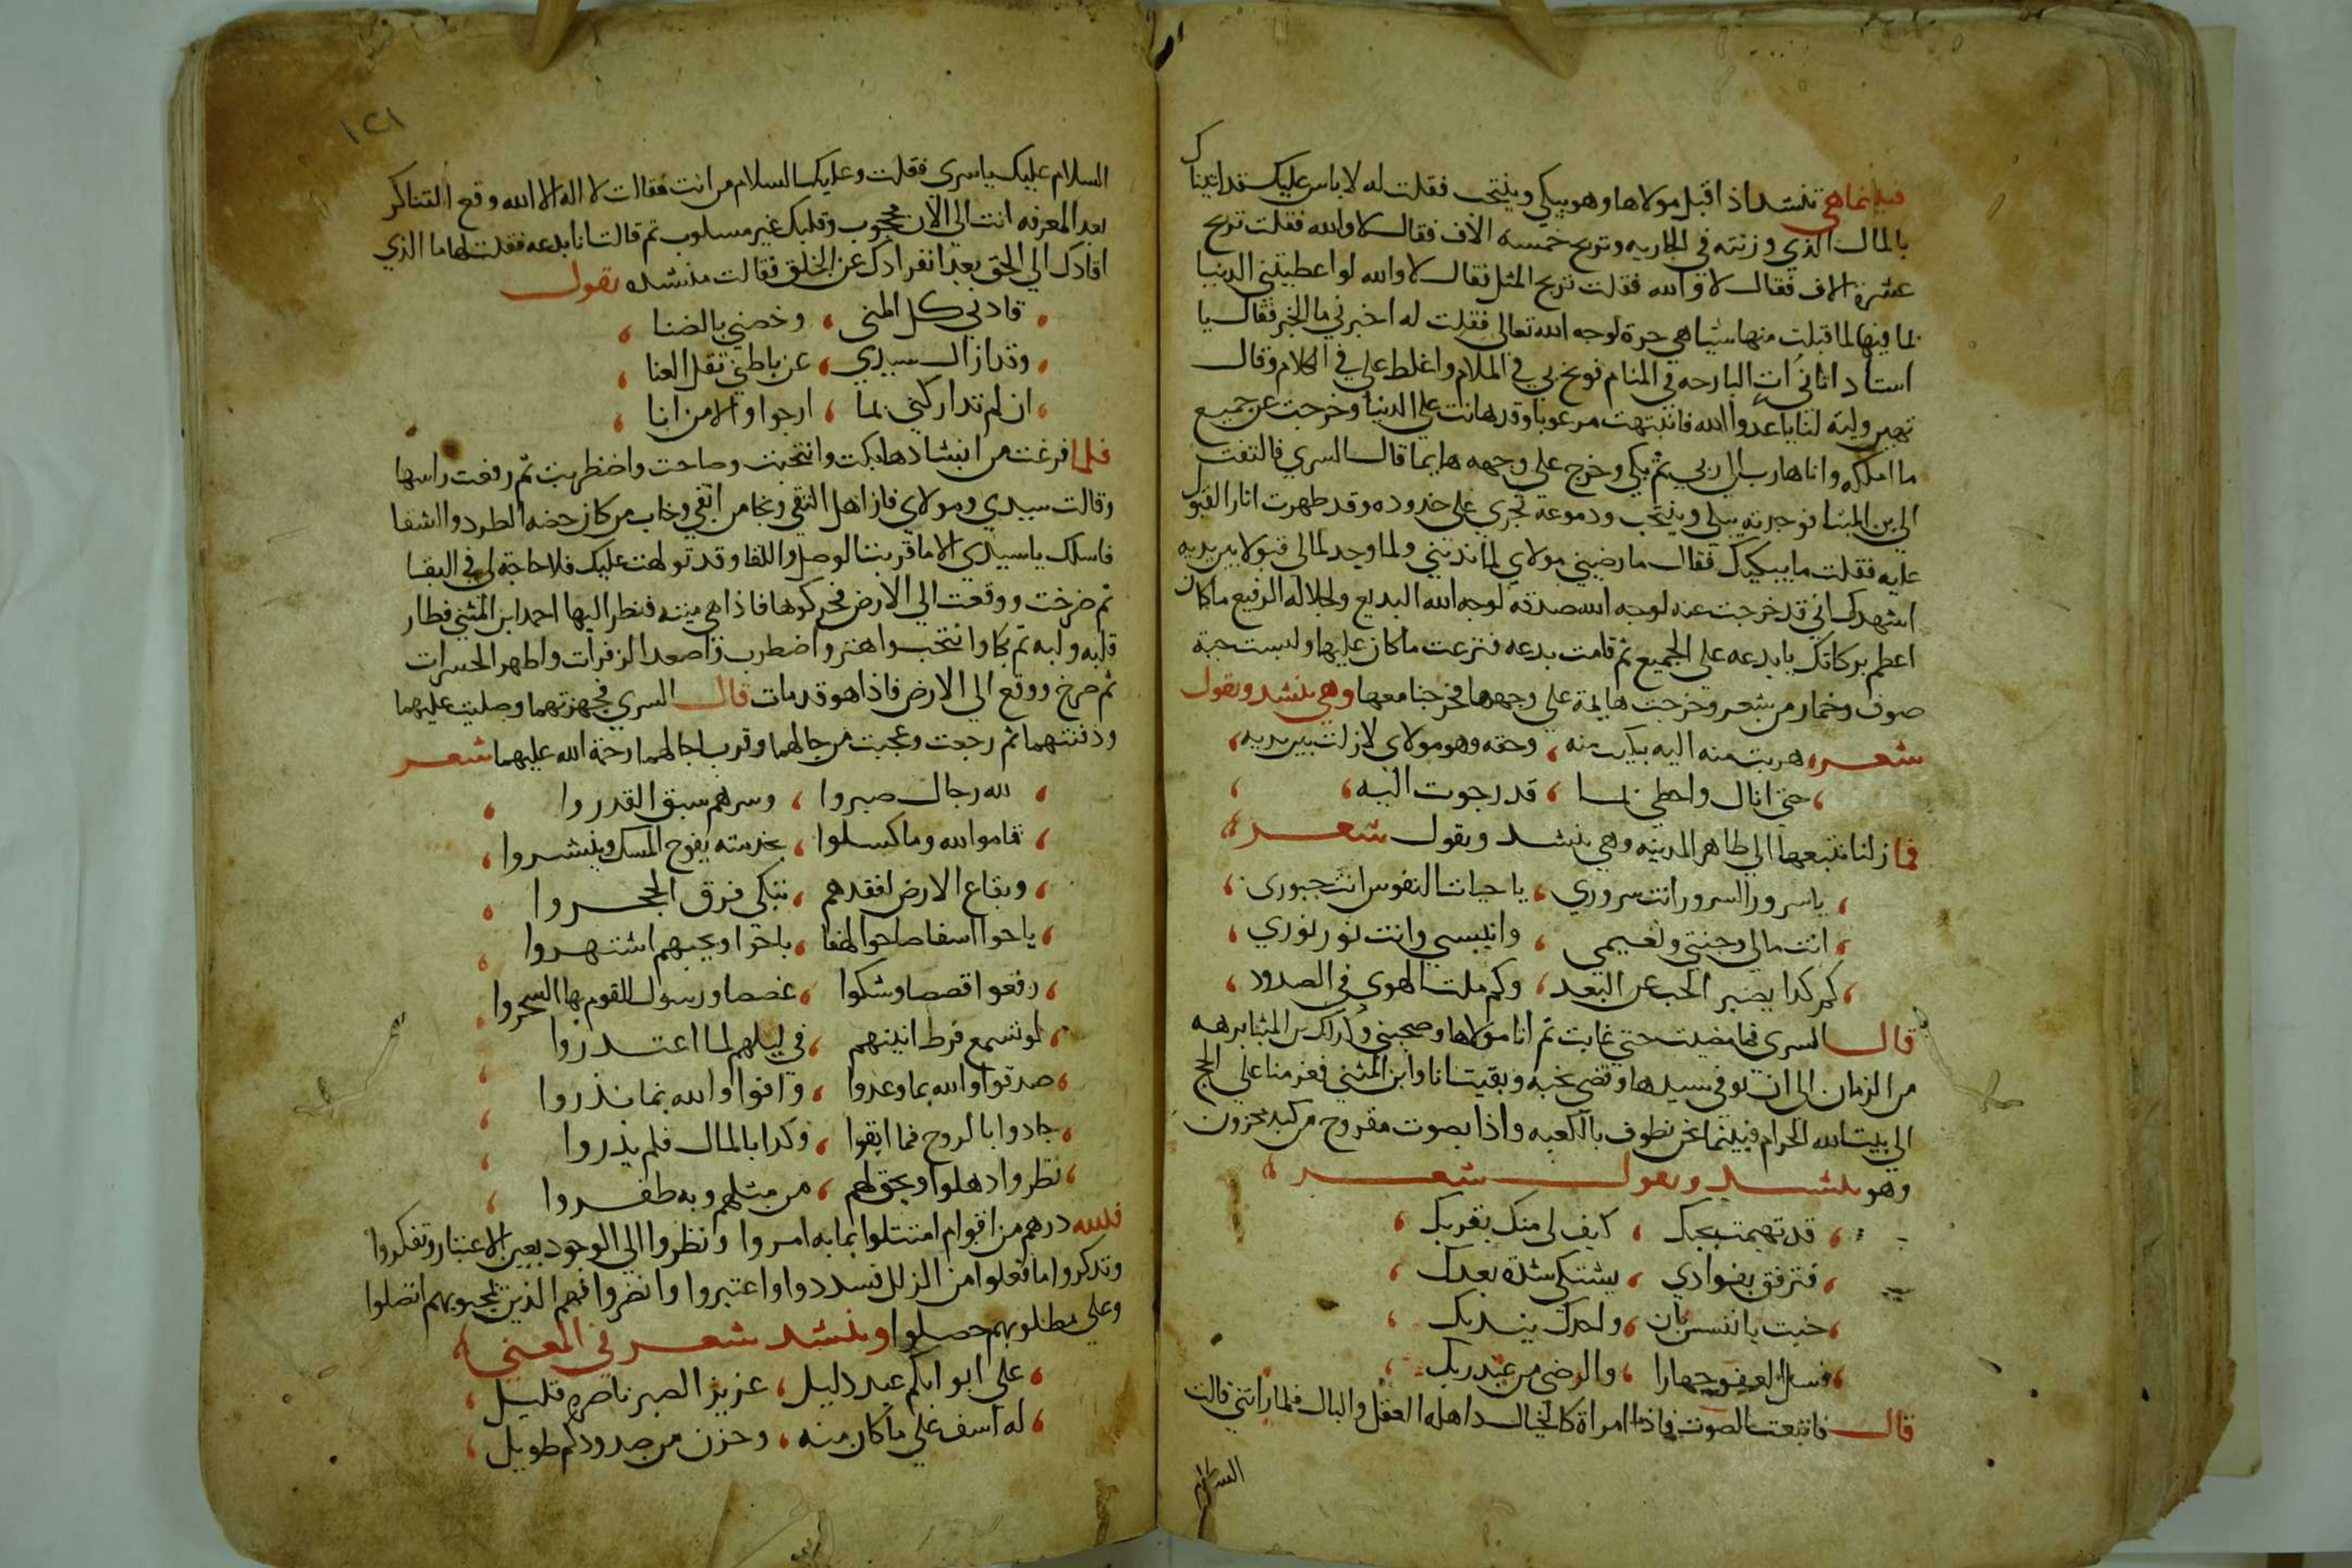 فبينما هي تنشد اذ اقبل مولاها وهو يبكي وينتحب فقلت له لا باس عليك قد اتيناك
بالمال الذي وزنته في الجاريه وتربح خمسه الاف فقال لا والله فقلت تربح
عشرة الاف فقال لا والله فقلت تربح المثل فقال لا والله لو اعطيتني الدنيا
بما فيها لما قبلت منها شيا هي حرة لوجه الله تعالي فقلت له اخبرني ما الخبر فقال يا
استاد اتاني ات البارحه في المنام فوبخ بي في الملام واغلظ علي في الكلام وقال
تهين ولية لنا يا عدو الله فانتبهت مرعوبا وقد هانت علي الدنيا وخرجت عن جميع
ما املكه وانا هارب الي ربي ثم بكي وخرج علي وجهه هايما قال السري فالتفت
الي بن المثنا فوجدته يبكي وينتحب ودموعه تجري علي خدوده وقد ظهرت اثار القبول
عليه فقلت ما يبكيك فقال ما رضيني مولاي لما ندبني ولما وجد لمالي قبولا بين يديه
اشهدك اني قد خرجت عنه لوجه الله صدقه لوجه الله البديع ولجلاله الرفيع ما كان
اعظم بركاتك يا بدعه علي الجميع ثم قامت بدعه فنزعت ما كان عليها ولبست جبة
صوف وخمار من شعر وخرجت هايمة علي وجهها فخرجنا معها وهي تنشد وتقول
شعر هربت منه اليه بكيت منه وحقه وهو مولاي لا زلت بين يديه
حتي انال واحظي بما قد رجوت اليه
فما زلنا نتبعها الي ظاهر المدينه وهي تنشد وتقول شعر
يا سرور السرور انت سروري يا حيات النفوس انت حبوري
انت مالي وجنتي ونعيمي وانيسي وانت نور نوري
كم كدا يصبر المحب عن البعد وكم ملت الهوي في الصدود
قال السري فما مضيت حتي غابت ثم اتا مولاها وصحبني وكذلك بن المثنا برهه
من الزمان الي ان توفي سيدها وقضي نحبه وبقيت انا وابن المثني فعزمنا علي الحج
الي بيت الله الحرام فبينما نحن نطوف بالكعبه واذا بصوت مقروح من كبد محزون
وهو ينشد ويقول شعر
قد تهيمت بحبك كيف لي منك بقربك
فترفق بفوادي يشتكي شدة بعدك
خبت يا نفس
فسل العفو جهارا والرضي من عند ربك
قال فاتبعت الصوت فاذا امراة كالخيال داهلة العقل والبال فلما راتني قالت
السلام
١٢١
السلام عليك يا سري فقلت وعليك السلام من انت فقالت لا اله الا الله وقع التناكر
بعد المعرفه انت الي الان محجوب وقلبك غير مسلوب ثم قالت انا بدعه فقلت لها ما الذي
افادك الي الحق بعد انفرادك عن الخلق فقالت منشده تقول
قادني كل المني وخصني بالضنا
وقد ازال سيدي عن باطني ثقل العنا
ان لم تداركني بما ارجوا والا من انا
فلما فرغت من انشادها بكت وانتحبت وصاحت واضطربت ثم رفعت راسها
وقالت سيدي ومولاي فاز اهل التقي ونجا من اتقي وخاب من كان حضه الطرد والشقا
فاسلك يا سيدي الا ما قربت الوصل واللقا وقد تولهت عليك فلا حاجة لي في البقا
ثم صرخت ووقعت الي الارض فحركوها فاذا هي ميته فنظر اليها احمد ابن المثني فطار
قلبه ولبه ثم بكا وانتحب واهتز واضطرب واصعد الزفرات واظهر الحسرات
ثم صرخ ووقع الي الارض فاذا هو قد مات قال السري فجهزتهما وصليت عليهما
ودفنتهما ثم رجعت وعجبت من حالهما وقرب اجالهما رحمة الله عليهما شعر
لله رجال صبروا وسرهم سبق القدروا
قاموا لله وما كسلوا بخدمته يفوح المسك وينشروا
وبقاع الارض لفقدهم تبكي فرق الحجروا
باحوا اسفا صاحوا لهفا
رفعوا قصصا وشكوا غصصا ورسول القوم بها السحروا
لو تسمع فرط انينهم في ليلهم لما اعتدروا
صدقوا والله بما وعدوا وافوا والله بما نذروا
جادوا بالروح فما ابقوا وكدا بالمال فلم يذروا
نظروا دهلوا وبحق لهم من مثلهم وبه ظفروا
فلله درهم من اقوام امتثلوا بما به امروا ونظروا الي الوجود بعين الاعتبار وتفكروا
وتدكروا ما فعلوا من الزلل فسددوا واعتبروا وانضروا فهم الذين بمحبوبهم اتصلوا
وعلي مطلوبهم حصلوا وينشد شعر في المعني
علي ابوابكم عبد دليل عزيز الصبر ناصره قليل
له اسف علي ما كان منه وحزن من صدودكم طويل